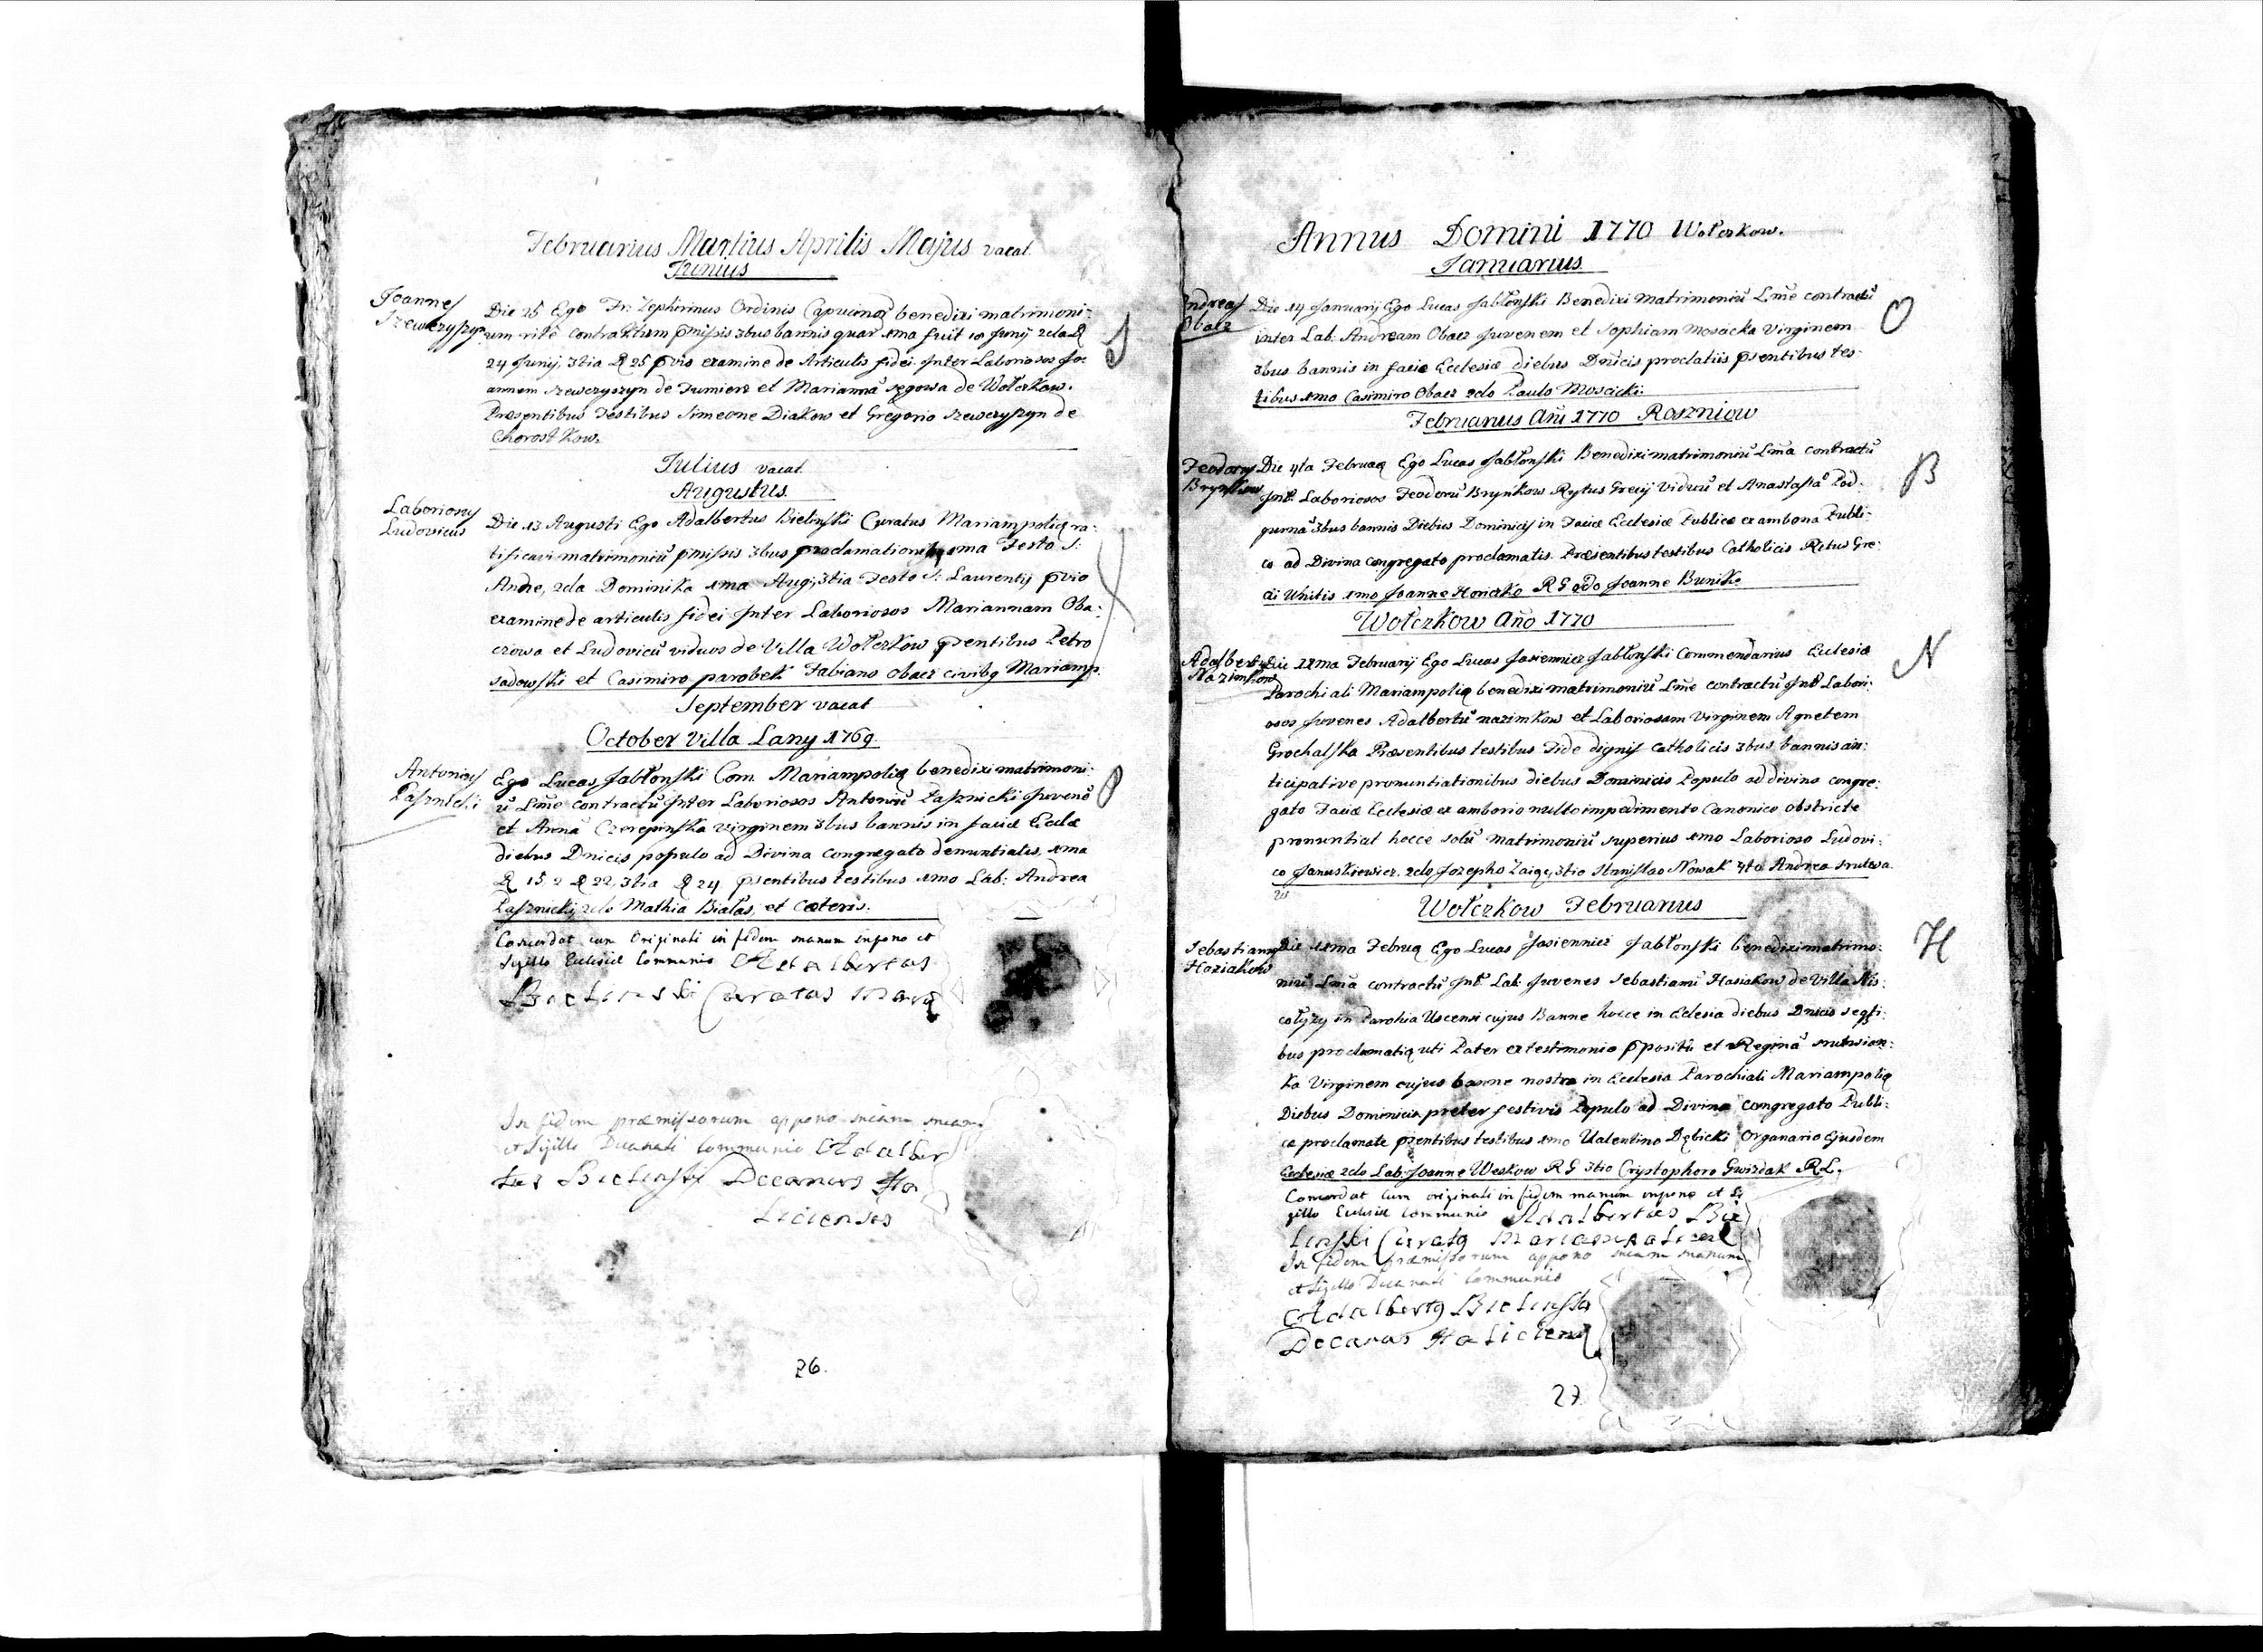 Februarius Martius Aprilis Majus vacat
Junius
Joannes
Szewczyszyn
Die 25 Ego Fr: Zephirinus Ordinis Capucinoꝝ benedixi matrimoni-
um rite contraktum p̄missis 3bus bannis quar̄ 1ma fuit 10 Junij 2da D
24 Junij, 3tia D 25 p̄vio examine de Articulis fidei Inter Laboriosos Jo-
annem Szewczyszyn de Tumierz et Mariannā sęgowa de Wołczkow.
Præsentibus Testibus Simeone Diakow et Gregorio Szewczyszyn de
Chorostkow.
Julius vacat
Augustus.
Laboriosus
Ludovicus
Die 13 Augusti Ego Adalbertus Bielinski Curatus Mariampolię ra-
tificavi matrimoniū p̄missis 3bus proclamationibus 1ma Festo S:
Andre, 2da Dominika 1ma Aug, 3tia Festo S: Laurentij p̄vio
examine de articulis fidei Inter Laboriosos Mariannam Oba-
czowa et Ludovicū viduos de Villa Wołczkow p̄sentibus Petro
Sadowski et Casimiro parobek Fabiano Obacz civibꝗ Mariamp.
September vacat
October Villa Lany 1769.
Antonius
Pasznicki
Ego Lucas Jabłonski Com. Mariampolię benedixi matrimoni-
ū Lm̄e contractū Inter Laboriosos Antoniū Pasznicki Juvenē
et Annā Czerepinska virginem 3bus bannis in facie Eccłæ
diebus Dnicis populo ad Divina congregato denuntiatis, 1ma
D 15, 2 D 22, 3tia D 24 p̄sentibus testibus 1mo Lab: Andrea
Pasznicki, 2do Mathia Białas, et Cæteris.
Concordat cum Originali in fidem manum inpono et
Sigillo Ecclesiæ Communio Adalbertus
Bielinski Curatus Marię
In fidem præmissorum appono meam manum
et Sigillo Decanali Communio Adalber
tus Bielinski Decanus Ha
liciensis
26.
Annus Domini 1770 Wołczkow.
Januarius
Andreas
Obacz
Die 14 Januarij Ego Lucas Jabłonski Benedixi matrimoniū Lm̄e contractū
inter Lab: Andream Obacz Juvenem et Sophiam Moscicka Virginem
3bus bannis in facie Ecclesiæ diebus Dnicis proclatiis p̄sentibus tes-
tibus 1mo Casimiro Obacz 2do Paulo Moscicki.
O
Februarius Anī 1770 Roszniow
Feodorus
Brynkow
Die 4ta Februaꝝ Ego Lucas Jabłonski Benedixi matrimoniū Lm̄a contractū
Int̄ Laboriosos Teodorū Brynkow Rytus Grecij Viduū et Anastasiā Pod-
gurnā 3bus bannis Diebus Dominicis in Facie Ecclesiæ Publice ex ambona Publi-
co ad Divina congregato proclamatis. Præsentibus testibus Catholicis Ritus Gre-
ci Unitis 1mo Joanne Horiczko R G 2do Joanne Buniko
B
Wołczkow Año 1770
Adalbertus
Nazimkow
Die 11ma Februarij Ego Lucas Jasiennicz Jabłonski Commendarius Eclesiæ
Parochiali Mariampolię benedixi matrimoniū Lm̄e contractū Int̄ Labori-
osos Juvenes Adalbertū nazimkow et Laboriosam Virginem Agnetem
Grochalska Præsentibus testibus Fide dignis Catholicis 3bus bannis an-
ticipative pronuntiationibus diebus Dominicis Populo ad divina congre-
gato Facie Ecclesiæ ex amborio nullo impedimento Canonico obstricte
pronuntiat hocce solū matrimoniū superius 1mo Laborioso Ludovi-
co Januskiewicz. 2do Jozepho Zaięc, 3tio Stanislao Nowak 4to Andrea
N
Wołczkow Februarius
Sebastianus
Haziakow
Die 11ma Februaꝝ Ego Lucas Jasiennicz Jabłonski benedixi matrimo-
niū Lm̄a contractū Int̄ Lab: Juvenes Sebastianū Hasiakow de Villa Nis-
cołyzy in Parohia Uscensi cujus Banne hocce in Eclesia diebus Dnicis
bus proclamatiꝗ uti Pater ex testimonio p̄positū et Reginā
ka Virginem cujus banne nostra in Ecclesia Parochiali Mariampolię
Diebus Dominicis preter festivis Populo ad Divina congregato Publi-
ce proclamate p̄sentibus testibus 1mo Valentino Dębicki Organario Ejusdem
Ecclesiæ 2do Lab: Joanne Weskow R G 3tio Crystophoro Gwizdak RL.
H
Concordat cum originali in fidem manum inpono et Si
gillo Ecclesiæ Communio Adalbertus Bie
linski Curatꝗ Mariampoliens
In fidem præmissorum appono meam manum
et Sigillo Decanali Communio
Adalbertꝗ Bielinski
Decanus Haliciens
27